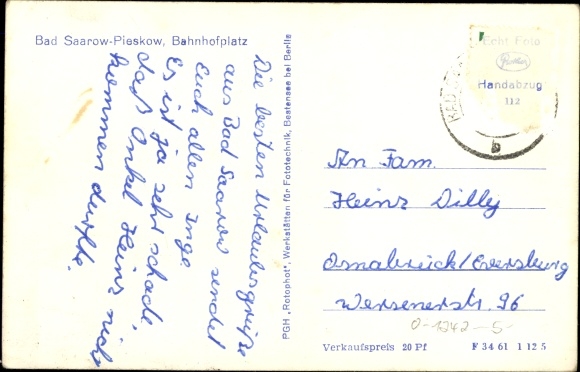 Bad Saarow-Pieskow, Bahnhofplatz
Die besten Urlaubsgrüße
aus Bad Saarow sendet
Euch allen Inge.
Es ist ja sehr schade,
daß Onkel Heinz nicht
kommen durfte.
PGH „Rotophot", Werkstätten für Fototechnik, Bestensee bei Berlin
Echt Foto
Handabzug
112
b
An Fam.
Heinz Dilly
Osnabrück/Eversburg
Wersenerstr. 96
0-1242-5-
Verkaufspreis 20 Pf
F 34 61 1 12 5